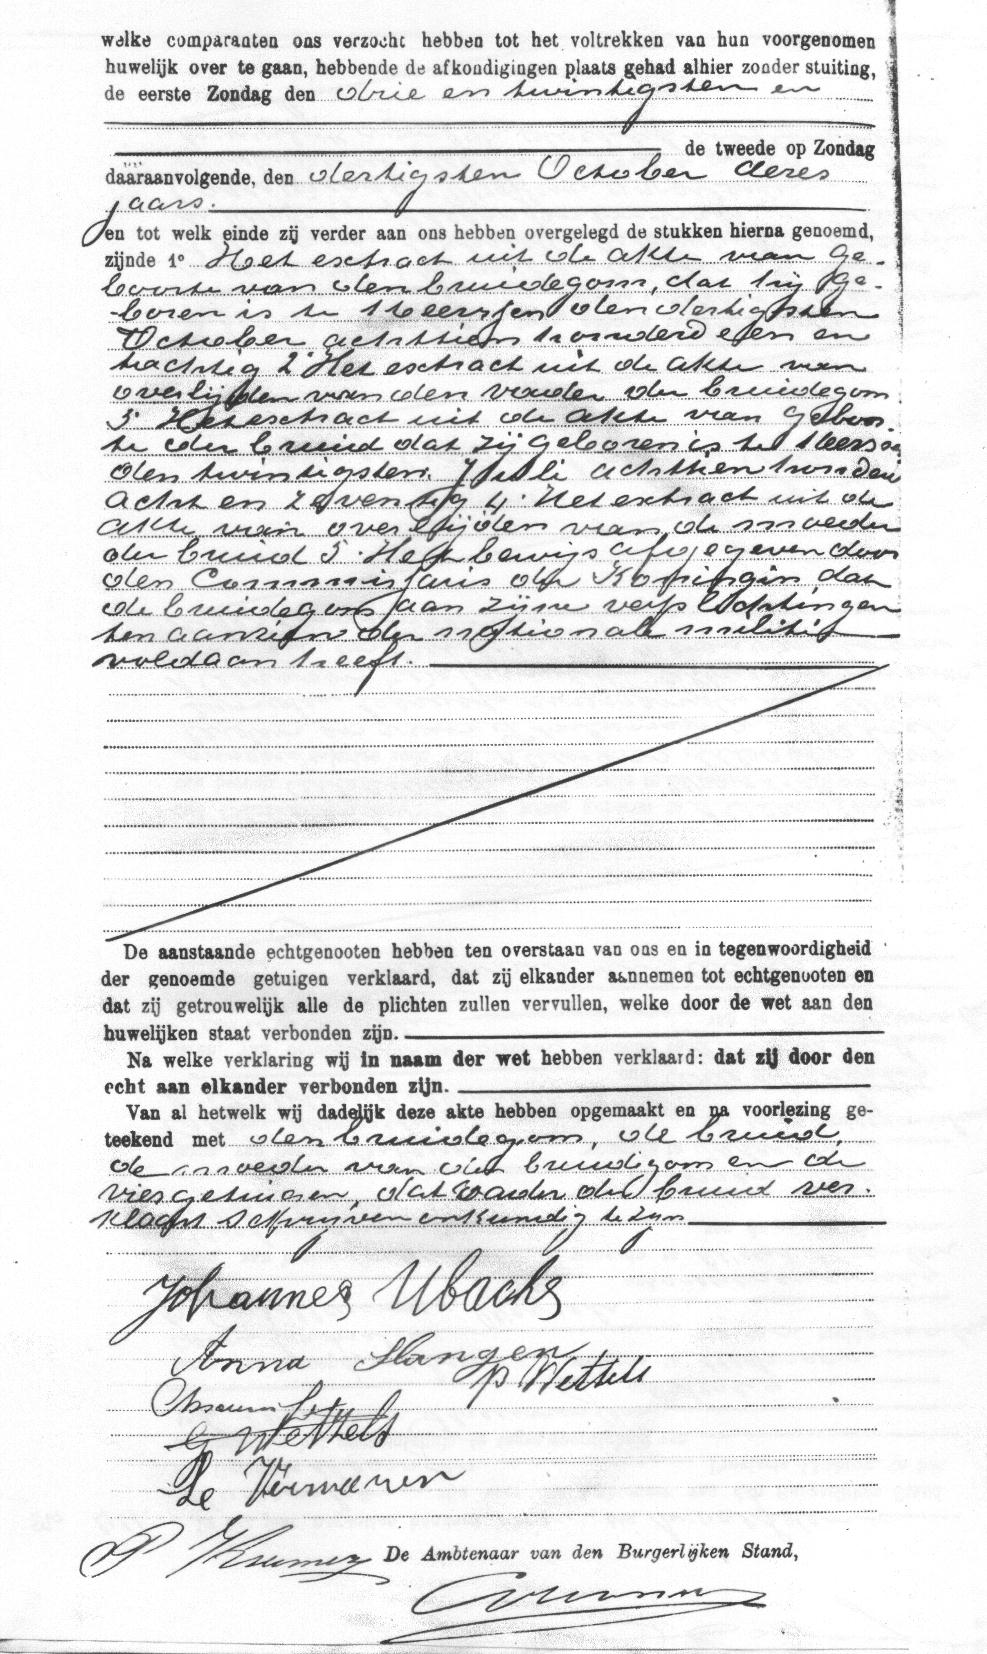 welke comparanten ons verzocht hebben tot het voltrekken van hun voorgenomen
huwelijk over te gaan, hebbende de afkondigingen plaats gehad alhier zonder stuiting,
de eerste Zondag den drie en twintigsten en
de tweede op Zondag
daaraanvolgende, den dertigsten October dezes
jaars.
en tot welk einde zij verder aan ons hebben overgelegd de stukken hierna genoemd,
zijnde 1° Het extract uit de akte van ge-
boorte van den bruidegom, dat hij ge-
-boren is te Heerlen den dertigsten
October achttien honderd een en
tachtig 2° Het extract uit de akte van
overlijden van den vader der bruidegom.
3° Het extract uit de akte van geboor-
te der bruid dat zij geboren is te
den twintigsten Juli achttien honderd
acht en zeventig 4° Het extract uit de
akte van overlijden van de moeder
der bruid 5° Het bewijs afgegeven door
den Commissaris der Koningin dat
de bruidegom aan zijne verplichtingen
ten aanzien der nationale militie
voldaan heeft.
De aanstaande echtgenooten hebben ten overstaan van ons en in tegenwoordigheid
der genoemde getuigen verklaard, dat zij elkander aannemen tot echtgenooten en
dat zij getrouwelijk alle de plichten zullen vervullen, welke door de wet aan den
huwelijken staat verbonden zijn.
Na welke verklaring wij in naam der wet hebben verklaard: dat zij door den
echt aan elkander verbonden zijn.
Van al hetwelk wij dadelijk deze akte hebben opgemaakt en na voorlezing ge-
teekend met den bruidegom, de bruid,
de moeder van den bruidigom en de
vier getuigen, dat vader der bruid ver-
klaart schrijven onkundig te zijn
Johannes Ubachs
Anna Slangen
p Wetzels
G Wetzels
Le Vermaren
P Kremer
De Ambtenaar van den Burgerlijken Stand,